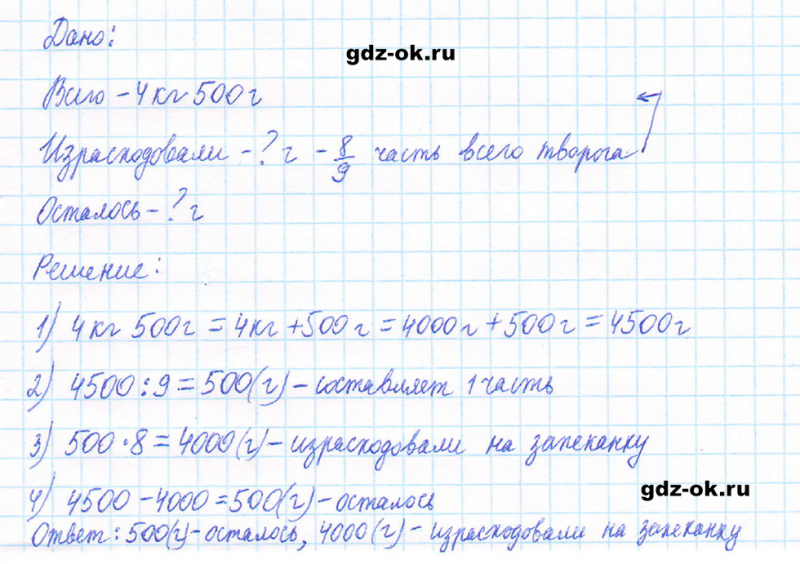 Дано:
gdz-ok.ru
Всего – 4 кг 500 г
Израсходовали – ? г – 8/9 часть всего творога
Осталось – ? г
Решение:
1) 4 кг 500 г = 4 кг + 500 г = 4000 г + 500 г = 4500 г
2) 4500 : 9 = 500 (г) – составляет 1 часть
3) 500 · 8 = 4000 (г) – израсходовали на запеканку
4) 4500 – 4000 = 500 (г) – осталось
gdz-ok.ru
Ответ: 500 (г) – осталось, 4000 (г) – израсходовали на запеканку